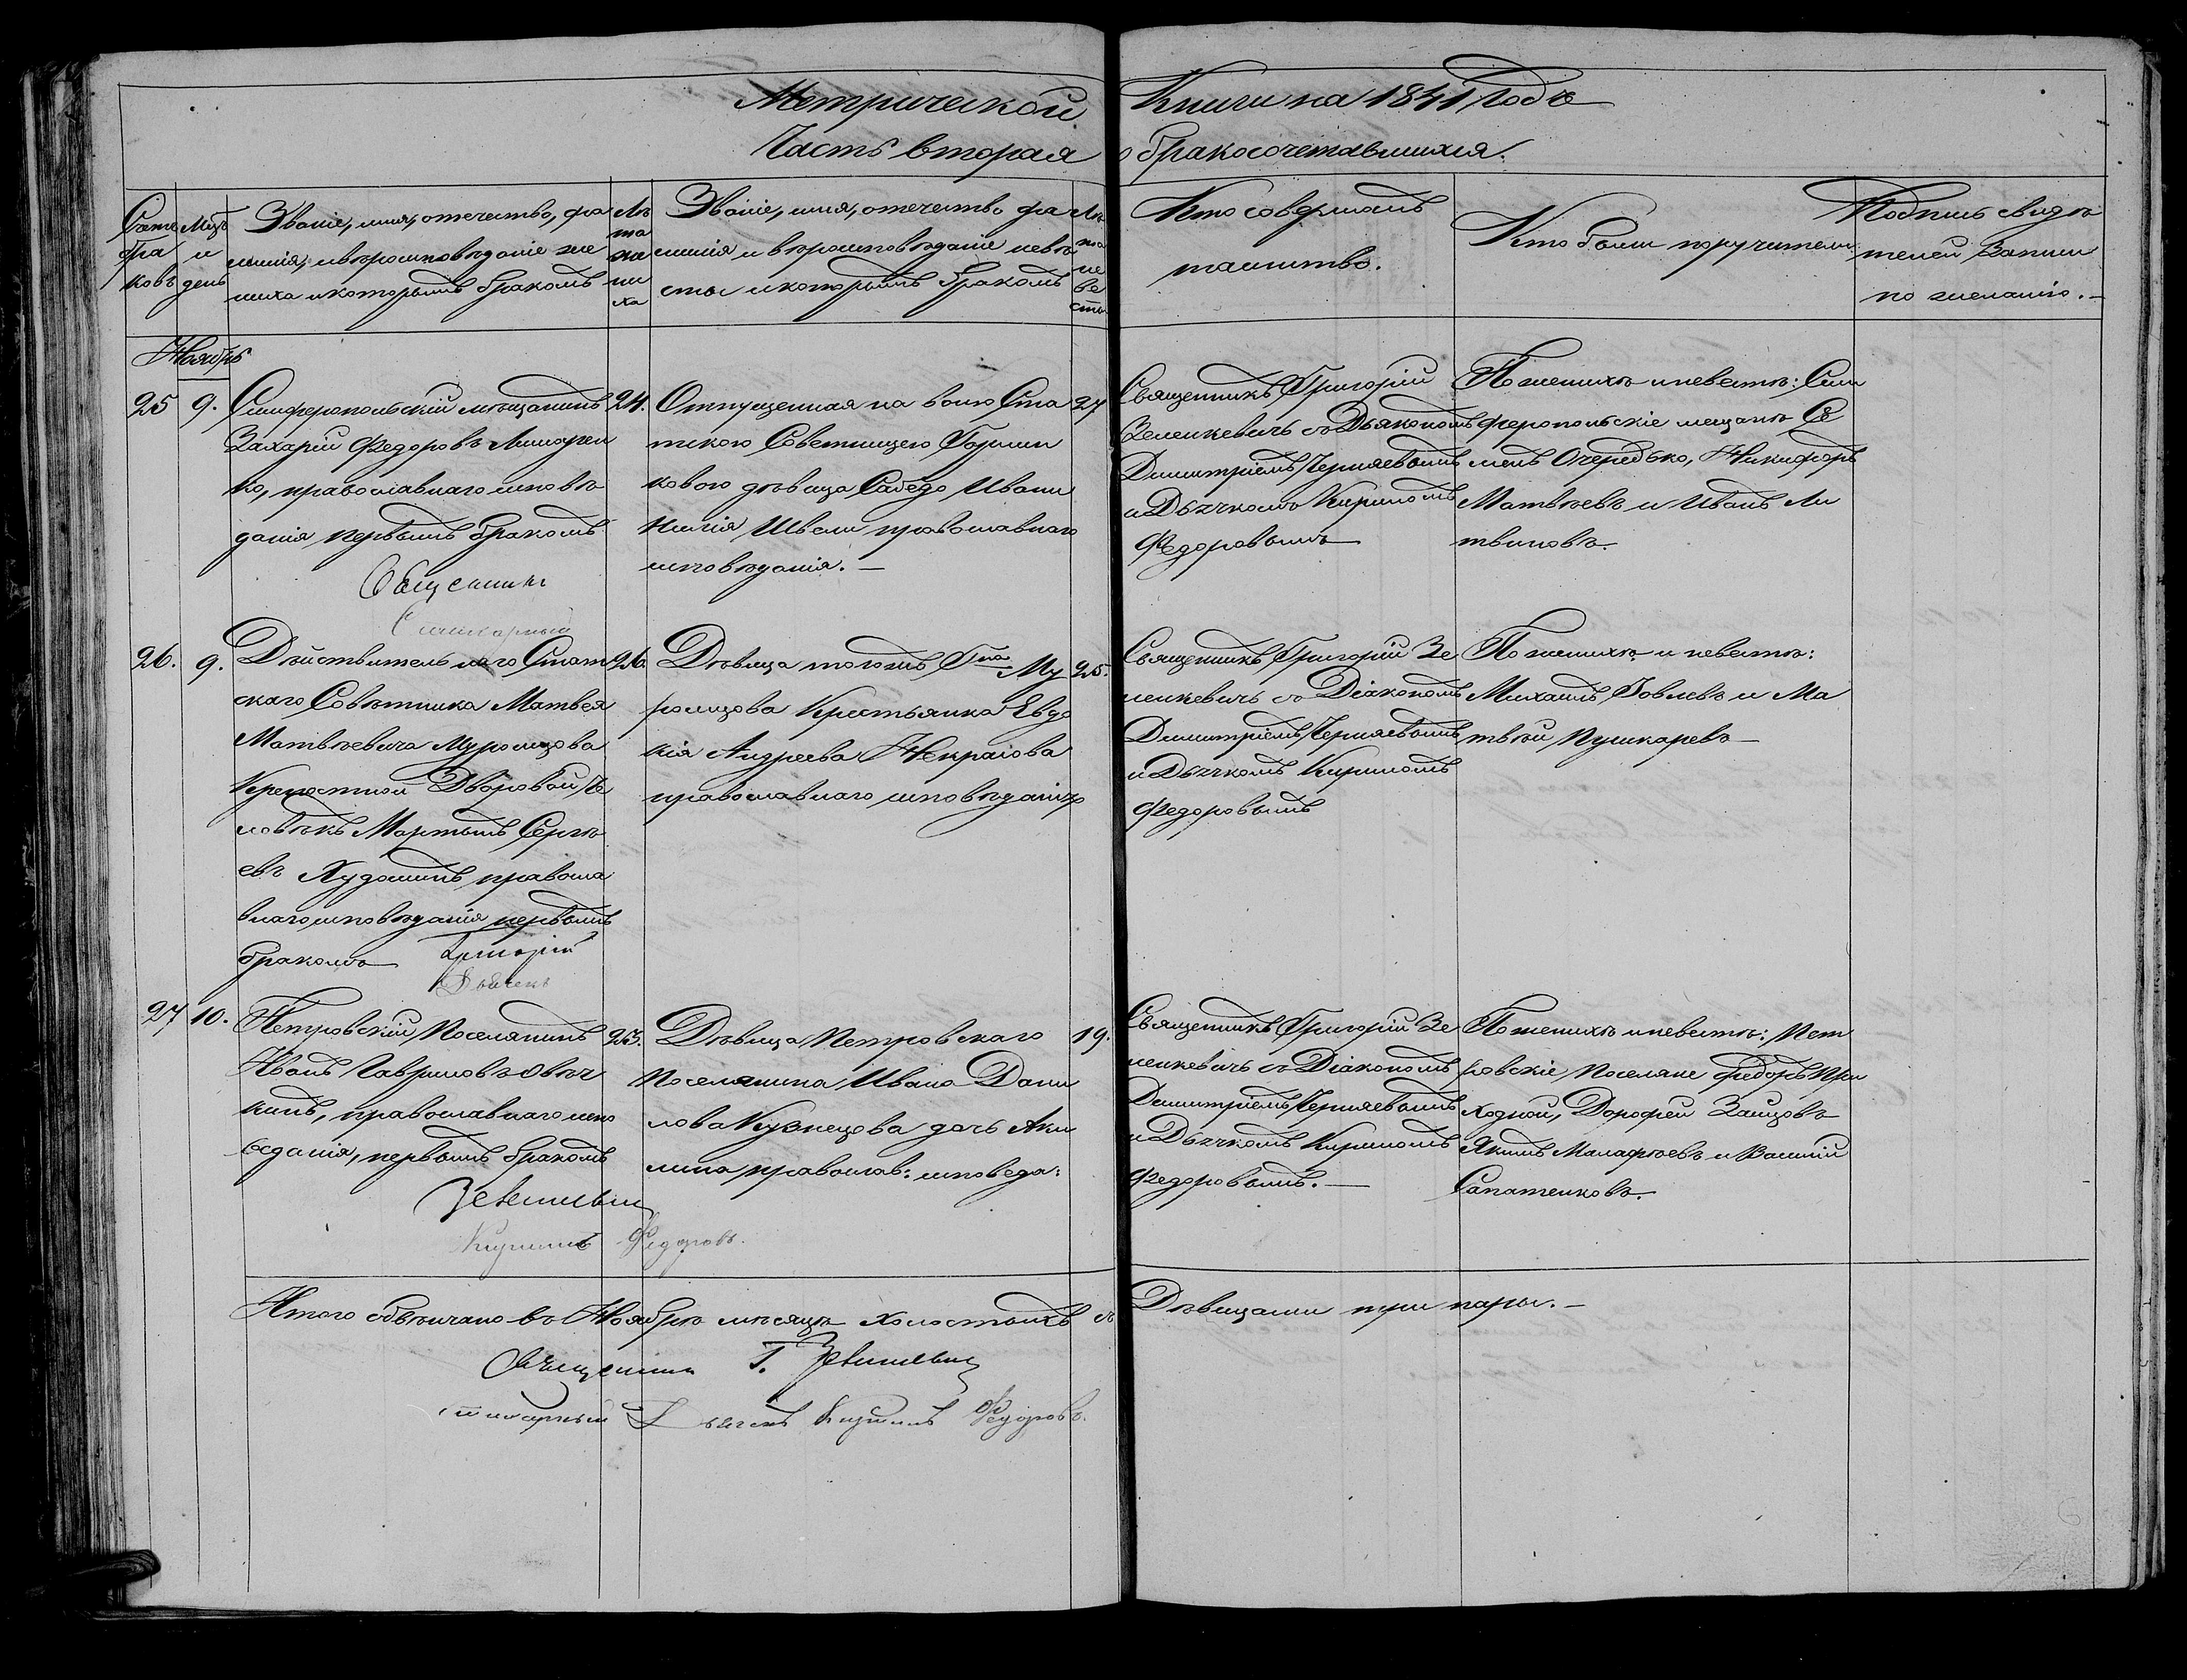 Метрической Книги на 1841 Годъ
Часть вторая о бракосочетавшихся.
Счетъ бра ковъ
Мцъ и день
Званіе, имя, отечество, фа
милія, и вѣроисповѣданіе же
ниха и которымъ бракомъ
Лѣ та же ни ха
Званіе, имя, отечество фа
милія и вѣроисповѣданіе невѣ
сты и которымъ бракомъ
Лѣ та не ве сты
Кто совершалъ
таинство.
Кто были поручители
Подпись свидѣ
телей Записи
по желанію.
Ноябрь
25
9.
Симферопольскій мѣщанинъ
Захарій Федоровъ
ко, православнаго исповѣ
данія первымъ бракомъ
24.
Отпущенная на волю Ста
тского Советницею
кового дѣвица Ивани
Швели православнаго
исповѣданія.
27
Священникъ Григорій
Зеленкевичъ съ Дьякономъ
Димитріемъ Черняевымъ
и Дьячкомъ Кириломъ
Федоровымъ
По женихѣ и невестѣ: Сим
феропольскіе мещане Се
менъ Очередько, Никифоръ
Матвѣевъ и Иванъ Ли
твиновъ.
Священникъ
Пономарный
26.
9.
Дѣйствительнаго Стат
скаго Совѣтника Матвея
Матвѣевича Муромцова
Крепостной Дворовой Че
ловѣкъ Мартынъ Сергѣ
евъ Худошинъ правосла
внаго исповѣданія первымъ
бракомъ
26.
Дѣвица тогожъ Гна Му
ромцова Крестьянка Евдо
кія Андреева Некрасова
православнаго исповѣданія
25.
Священникъ Григорій Зе
ленкевичъ съ Діакономъ
Димитріемъ Черняевымъ
и Дьячкомъ Кириломъ
Федоровымъ
По женихѣ и невестѣ:
Михаилъ Ковлевъ и Ма
твѣй Пушкаревъ
Григорій
Дьячекъ
27
10.
Петровскій Поселянинъ
Иванъ Гавриловъ Овеч
кинъ, православнаго испо
веданія, первымъ бракомъ
23.
Дѣвица Петровскаго
Поселянина Ивана Дани
лова Кузнецова дочь Аку
лина православ: исповеда:
19.
Священникъ Григорій Зе
ленкевичъ съ Діакономъ
Димитріемъ Черняевымъ
и Дьячкомъ Кириломъ
Федоровымъ.
По женихѣ и невестѣ: Пет
ровскіе Поселяне Федоръ При
ходной, Дорофей Зайцовъ
Якимъ Малафѣевъ и Василій
Сапатенковъ.
Зеленкевич
Кирилъ Федоровъ.
Итого обвѣнчано въ Ноябрѣ мѣсяцѣ холостыхъ съ Дѣвицами три пары.
Священникъ Г. Зеленкевич
Дьячекъ Кирилъ Федоровъ.